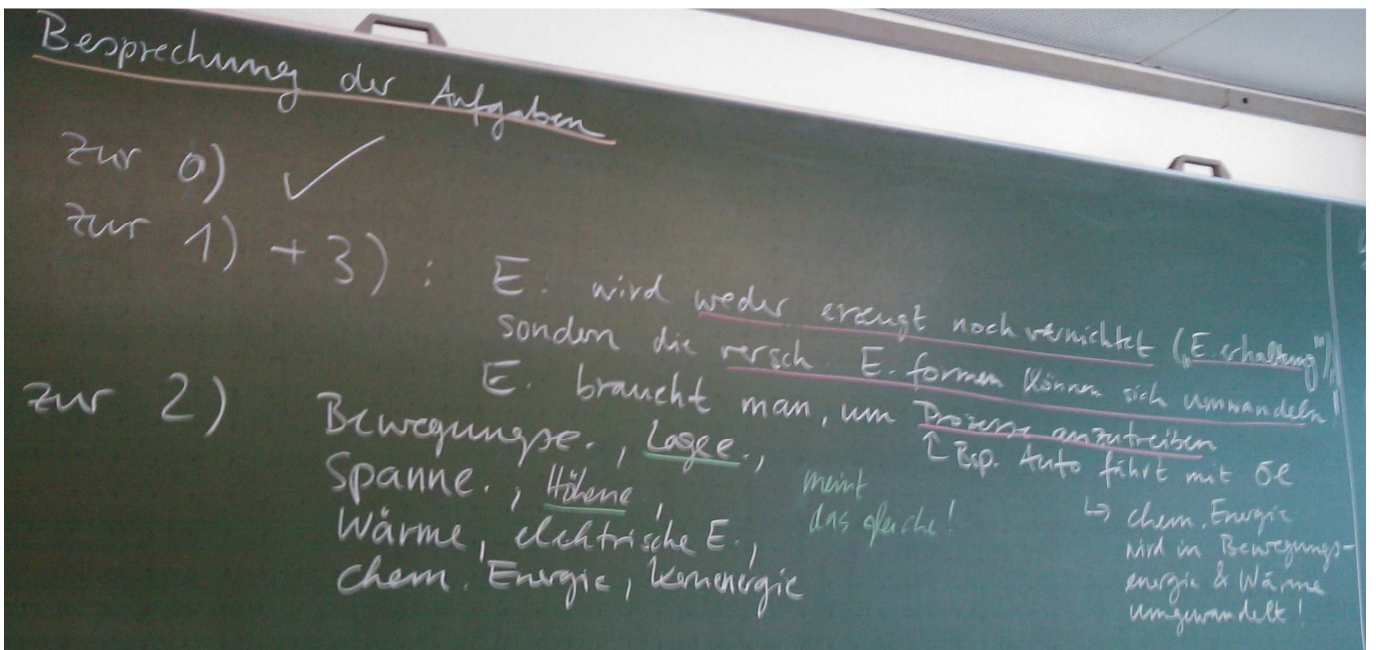 Besprechung der Aufgaben
zur 0) ✓
zur 1) + 3) : E. wird weder erzeugt noch vernichtet („E.erhaltung"),
sondern die versch. E.formen können sich umwandeln!
E. braucht man, um Prozesse anzutreiben
↑ Bsp. Auto fährt mit Öl
↳ chem. Energie
wird in Bewegungs-
energie & Wärme
umgewandelt!
zur 2) Bewegungse., Lagee.,
Spanne., Höhene,
Wärme, elektrische E.,
chem. Energie, Kernenergie
meint
das gleiche!